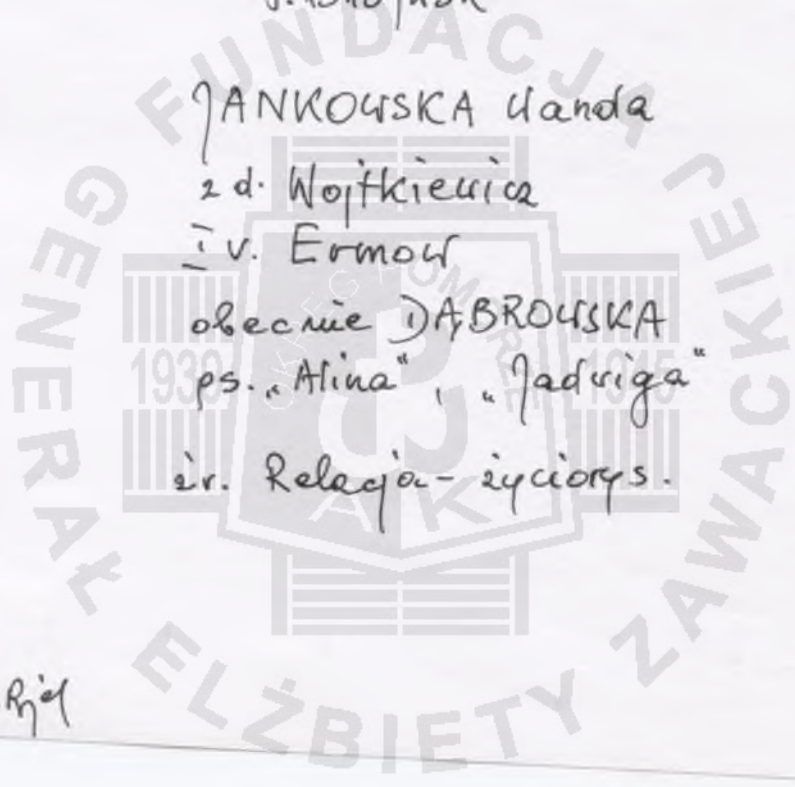 JANKOWSKA Wanda
z d. Wojtkiewicz
I v. Ermow
obecnie DĄBROWSKA
ps. „Alina", „Jadwiga"
źr. Relacja - życiorys.
FUNDACJA GENERAŁ ELŻBIETY ZAWACKIEJ
OKRĘG POMORZE
1939 1945
AK